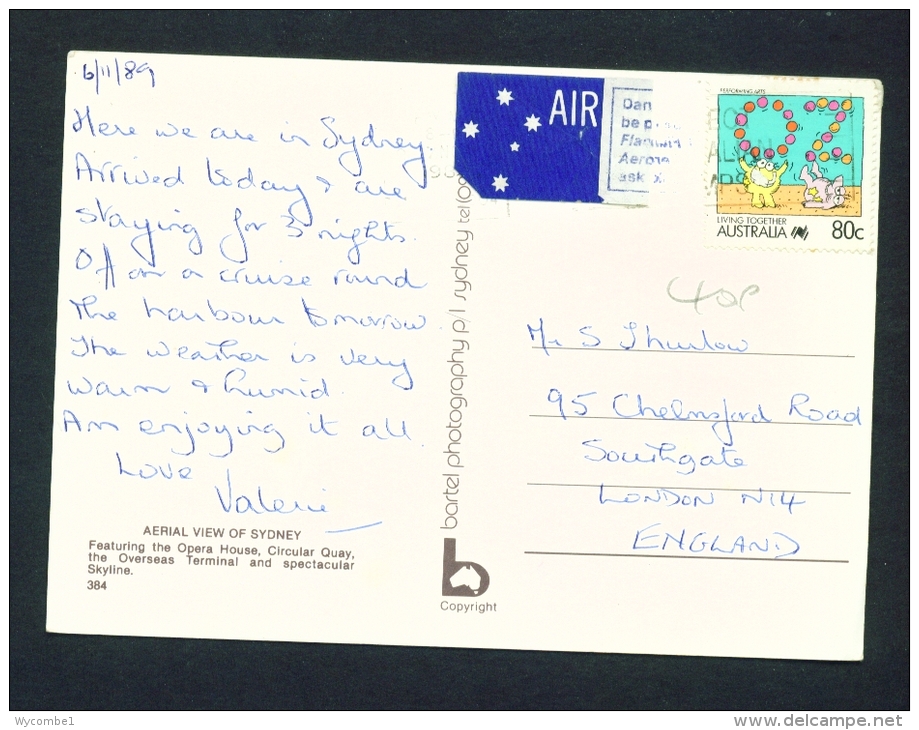 6/11/89
Here we are in Sydney.
Arrived today & are
staying for 3 nights.
Off on a cruise round
the harbour tomorrow.
The weather is very
warm & humid.
Am enjoying it all.
Love
Valerie
AERIAL VIEW OF SYDNEY
Featuring the Opera House, Circular Quay,
the Overseas Terminal and spectacular
Skyline.
384
bartel photography p/l sydney tel(0
Copyright
AIR
Dan
be p
Flamm
Aeros
ask
PERFORMING ARTS
OZ
LIVING TOGETHER
AUSTRALIA 80c
40p
Mr S Thurlow
95 Chelmsford Road
Southgate
LONDON N14
ENGLAND
Wycombe1
delcampe.net